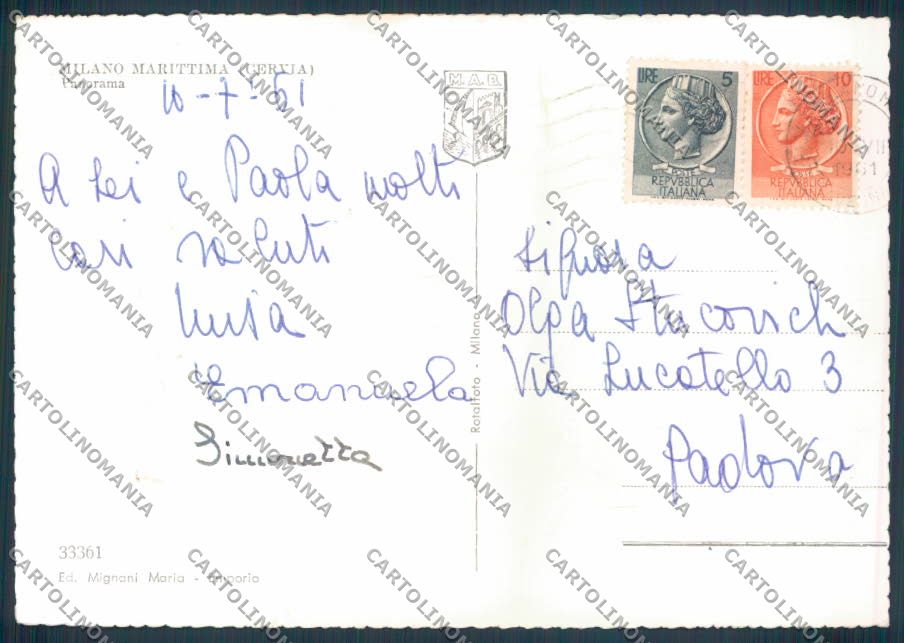 MILANO MARITTIMA (CERVIA)
Panorama
10-7-61
A Lei e Paola molti
cari saluti
Luisa
Emanuela
Simonetta
33361
Ed. Mignani Maria - Emporio
Rotalfoto - Milano
M.A.B.
LIRE 5
POSTE
REPVBBLICA
ITALIANA
LIRE 10
REPVBBLICA
ITALIANA
1961
Signora
Olga Stucovich
Via Lucatello 3
Padova
CARTOLINOMANIA